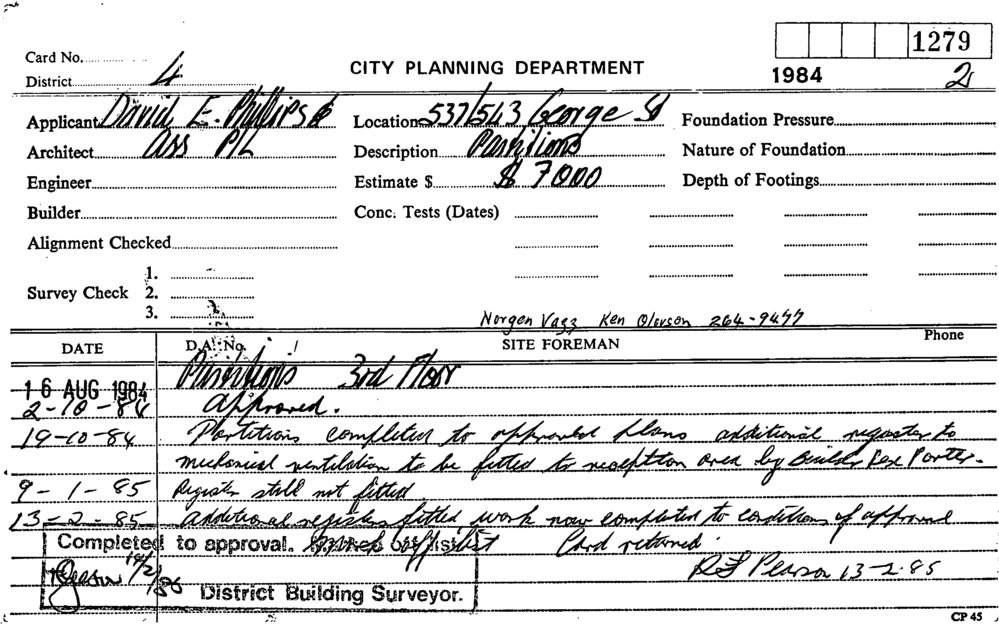 1279
Card No.
CITY PLANNING DEPARTMENT
1984 2
District 4
Applicant David E. Phillips & Location 537/543 George St Foundation Pressure
Architect Ass P/L Description Partitions Nature of Foundation
Engineer Estimate $ $ 7000 Depth of Footings
Builder Conc. Tests (Dates)
Alignment Checked
Survey Check 1.
2.
3.
Norgen Vazz Ken 264-9477
DATE D.A. No. SITE FOREMAN Phone
16 AUG 1984 Partitions 3rd Floor
2-10-84 Approved.
19-10-84 Partitions completed to approved plans additional register to
mechanical ventilation to be fitted to reception area by Builder Rex Porter.
9-1-85 Register still not fitted
13-2-85 Additional register fitted work now completed to conditions of approval
Completed to approval. Card returned.
R Pearson 13-2-85
District Building Surveyor.
CP 45